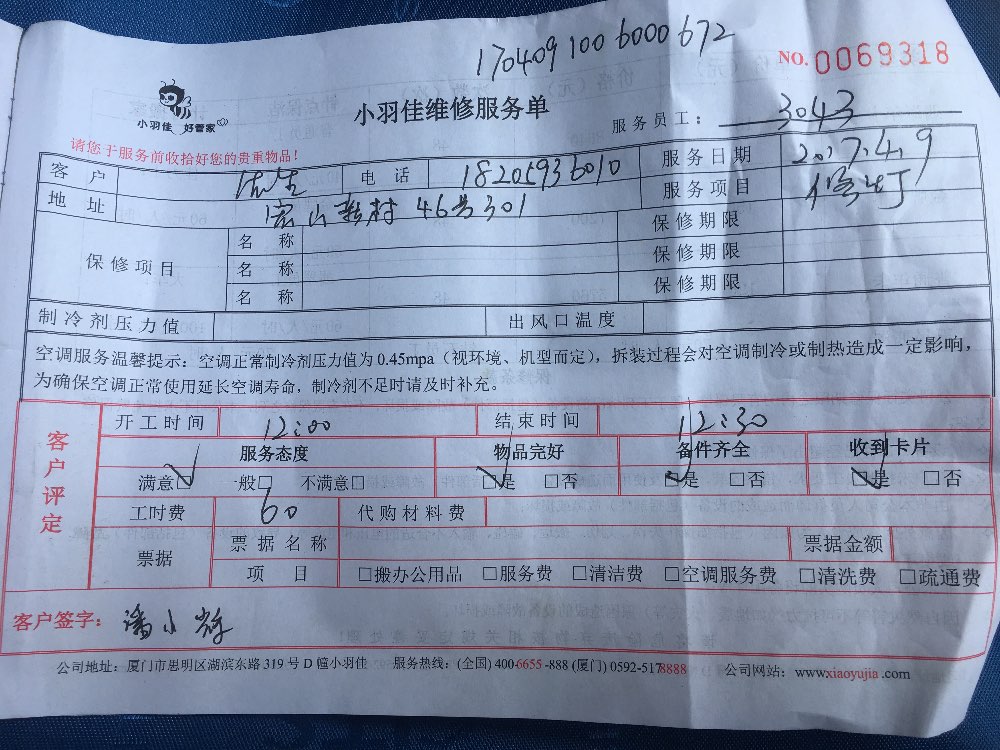 1704091006000672
NO. 0069318
小羽佳 好管家
小羽佳维修服务单
服务员工： 3043
请您于服务前收拾好您的贵重物品！
客户 电话 18205936010 服务日期 2017.4.9
地址 山新村46号301 服务项目 修灯
保修项目 名称 保修期限
名称 保修期限
名称 保修期限
制冷剂压力值 出风口温度
空调服务温馨提示：空调正常制冷剂压力值为0.45mpa（视环境、机型而定），拆装过程会对空调制冷或制热造成一定影响，
为确保空调正常使用延长空调寿命，制冷剂不足时请及时补充。
客户评定
开工时间 12:00 结束时间 12:30
服务态度 物品完好 备件齐全 收到卡片
满意☑ 一般□ 不满意□ ☑是 □否 ☑是 □否 ☑是 □否
工时费 60 代购材料费
票据 票据名称 票据金额
项目 □搬办公用品 □服务费 □清洁费 □空调服务费 □清洗费 □疏通费
客户签字： 潘小辉
公司地址：厦门市思明区湖滨东路319号D幢小羽佳 服务热线：(全国) 400-6655-888 (厦门) 0592-5178888 公司网站：www.xiaoyujia.com